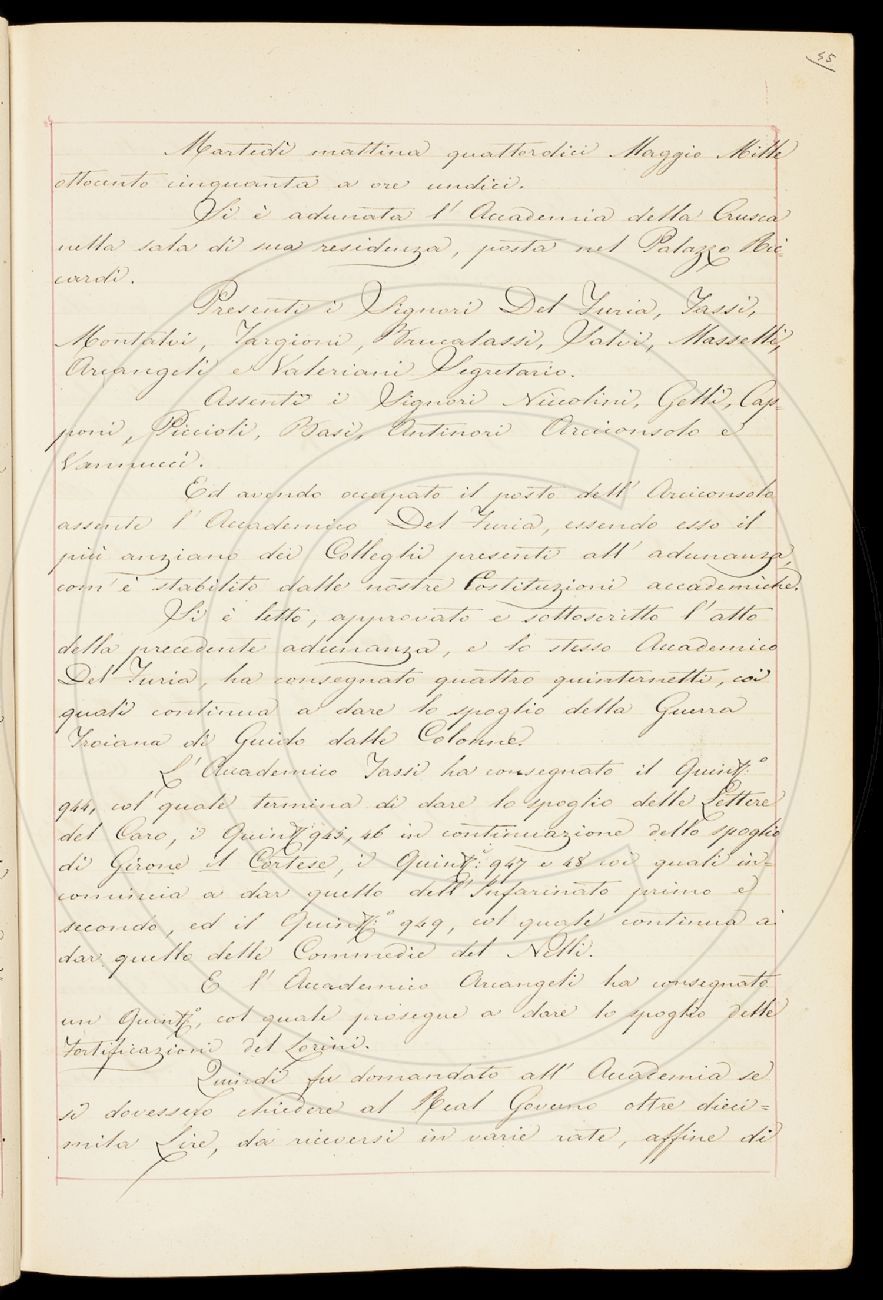 45
Martedì mattina quattordici Maggio Mille
ottocento cinquanta a ore undici.
Si è adunata l' Accademia della Crusca
nella sala di sua residenza, posta nel Palazzo Ric=
cardi.
Presenti i Signori Del Furia, Tassi,
Montalvi, Targioni, Brucalassi, Salvi, Masselli,
Arcangeli e Valeriani Segretario.
Assenti i Signori Niccolini, Gelli, Cap=
poni, Piccioli, Basi, Antinori Arciconsolo e
Vannucci.
Ed avendo occupato il posto dell' Arciconsolo
assente l' Accademico Del Furia, essendo esso il
più anziano dei Colleghi presenti all' adunanza,
com' è stabilito dalle nostre Costituzioni accademiche.
Si è letto, approvato e sottoscritto l' atto
della precedente adunanza, e lo stesso Accademico
Del Furia, ha consegnato quattro quinternetti, coi
quali continua a dare lo spoglio della Guerra
Troiana di Guido dalle Colonne.
L' Accademico Tassi ha consegnato il Quintt:°
944, col quale termina di dare lo spoglio delle Lettere
del Caro, i Quintt: 945, 46 in continuazione dello spoglio
di Girone il Cortese, i Quintt: 947 e 48 coi quali in=
comincia a dar quello dell' Infarinato primo e
secondo, ed il Quintt:° 949, col quale continua a
dar quello delle Commedie del Nelli.
E l' Accademico Arcangeli ha consegnato
un Quintt:°, col quale prosegue a dare lo spoglio delle
Fortificazioni del Lorini.
Quindi fu domandato all' Accademia se
si dovessero chiedere al Real Governo oltre dieci=
mila Lire, da riceversi in varie rate, affine di